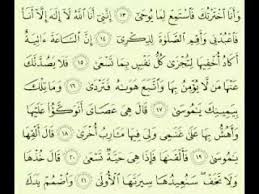 وَأَنَا ٱخْتَرْتُكَ فَٱسْتَمِعْ لِمَا يُوحَىٰٓ ١٣ إِنَّنِىٓ أَنَا ٱللَّهُ لَآ إِلَـٰهَ إِلَّآ أَنَا۠
فَٱعْبُدْنِى وَأَقِمِ ٱلصَّلَوٰةَ لِذِكْرِىٓ ١٤ إِنَّ ٱلسَّاعَةَ ءَاتِيَةٌ
أَكَادُ أُخْفِيهَا لِتُجْزَىٰ كُلُّ نَفْسٍۭ بِمَا تَسْعَىٰ ١٥ فَلَا يَصُدَّنَّكَ
عَنْهَا مَن لَّا يُؤْمِنُ بِهَا وَٱتَّبَعَ هَوَىٰهُ فَتَرْدَىٰ ١٦ وَمَا تِلْكَ
بِيَمِينِكَ يَـٰمُوسَىٰ ١٧ قَالَ هِىَ عَصَاىَ أَتَوَكَّؤُا۟ عَلَيْهَا
وَأَهُشُّ بِهَا عَلَىٰ غَنَمِى وَلِىَ فِيهَا مَـَٔارِبُ أُخْرَىٰ ١٨ قَالَ أَلْقِهَا
يَـٰمُوسَىٰ ١٩ فَأَلْقَىٰهَا فَإِذَا هِىَ حَيَّةٌ تَسْعَىٰ ٢٠ قَالَ خُذْهَا
وَلَا تَخَفْ سَنُعِيدُهَا سِيرَتَهَا ٱلْأُولَىٰ ٢١ وَٱضْمُمْ يَدَكَ